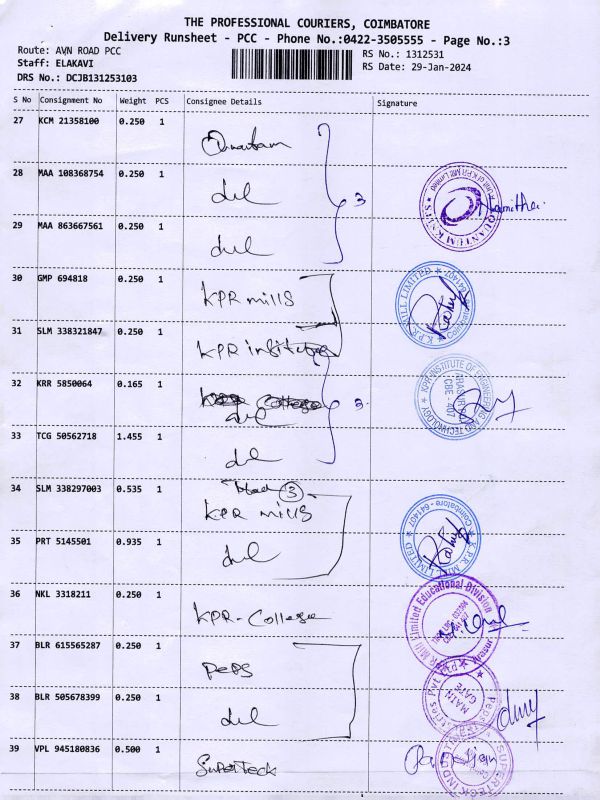 THE PROFESSIONAL COURIERS, COIMBATORE
Delivery Runsheet - PCC - Phone No.:0422-3505555 - Page No.:3
Route: AVN ROAD PCC
RS No.: 1312531
Staff: ELAKAVI
RS Date: 29-Jan-2024
DRS No.: DCJB131253103
S No Consignment No Weight PCS Consignee Details Signature
27 KCM 21358100 0.250 1
28 MAA 108368754 0.250 1
3
29 MAA 863667561 0.250 1
30 GMP 694818 0.250 1 KPR mills
31 SLM 338321847 0.250 1 KPR institute
32 KRR 5850064 0.165 1
3
33 TCG 50562718 1.455 1
34 SLM 338297003 0.535 1 3 KPR mills
35 PRT 5145501 0.935 1
36 NKL 3318211 0.250 1 KPR-College
37 BLR 615565287 0.250 1 PePS
38 BLR 505678399 0.250 1
39 VPL 945180836 0.500 1 SuperTeck
QUANTUM KNITS
A Unit of KPR Mill Limited
Namitha
K.P.R. MILL LIMITED
Coimbatore - 641407
KPR INSTITUTE OF ENGINEERING AND TECHNOLOGY
CBE - 407
K.P.R. MILL LIMITED
Coimbatore - 641407
KPR Mill Limited Educational Division
MAIN GATE
SUPERTECK INDUSTRIES